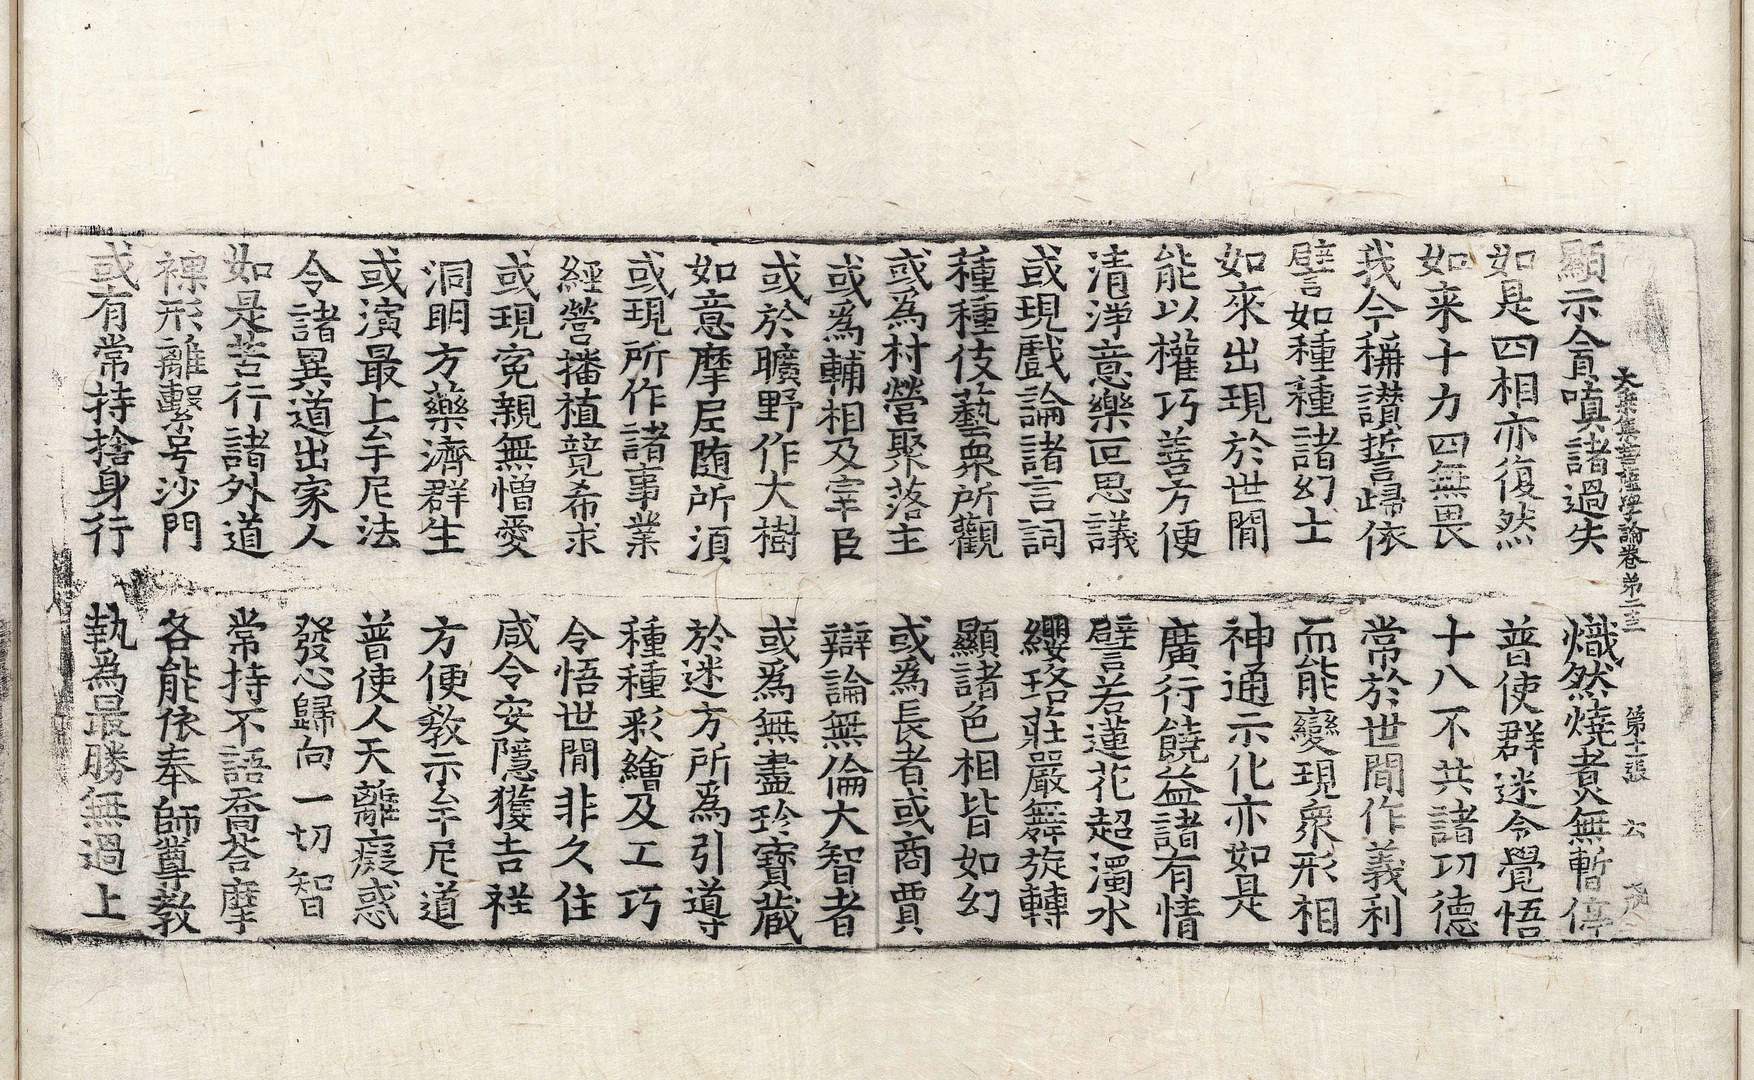 大乘集菩薩學論卷第二十三 第十一張 六 茂
顯示貪嗔諸過失 熾然燒煮無暫停
如是四相亦復然 普使群迷令覺悟
如来十力四無畏 十八不共諸功德
我今稱讃誓歸依 常於世間作義利
譬如種種諸幻士 而能變現衆形相
如來出現於世間 神通示化亦如是
能以權巧善方便 廣行饒益諸有情
清淨意樂叵思議 譬若蓮花超濁水
或現戲論諸言詞 纓珞莊嚴舞旋轉
種種伎藝衆所觀 顯諸色相皆如幻
或為村營聚落主 或為長者或商賈
或為輔相及宰臣 辯論無倫大智者
或於曠野作大樹 或為無盡珎寶藏
如意摩尼随所須 於迷方所為引導
或現所作諸事業 種種彩繪及工巧
經營播植競希求 令悟世間非久住
或現寃親無憎愛 咸令安隱獲吉祥
洞明方藥濟群生 方便教示牟尼道
或演最上牟尼法 普使人天離癡惑
令諸異道出家人 發心歸向一切智
如是苦行諸外道 常持不語喬荅摩
裸形離繫号沙門 各能依奉師尊教
或有常持捨身行 執為最勝無過上